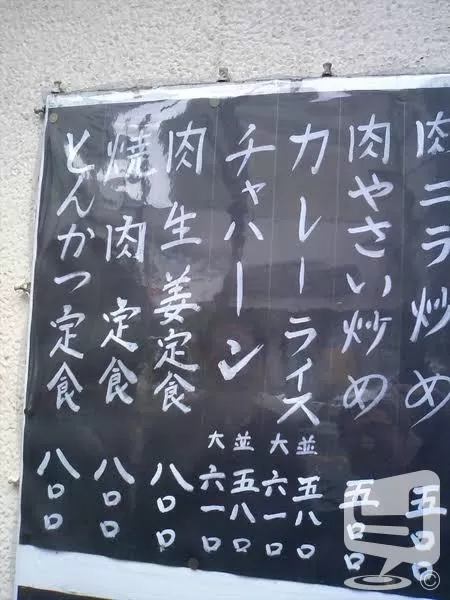 肉ニラ炒め 五〇〇
肉やさい炒め 五〇〇
カレーライス 並 五八〇 大 六一〇
チャハーン 並 五八〇 大 六一〇
肉生姜定食 八〇〇
焼肉定食 八〇〇
とんかつ定食 八〇〇